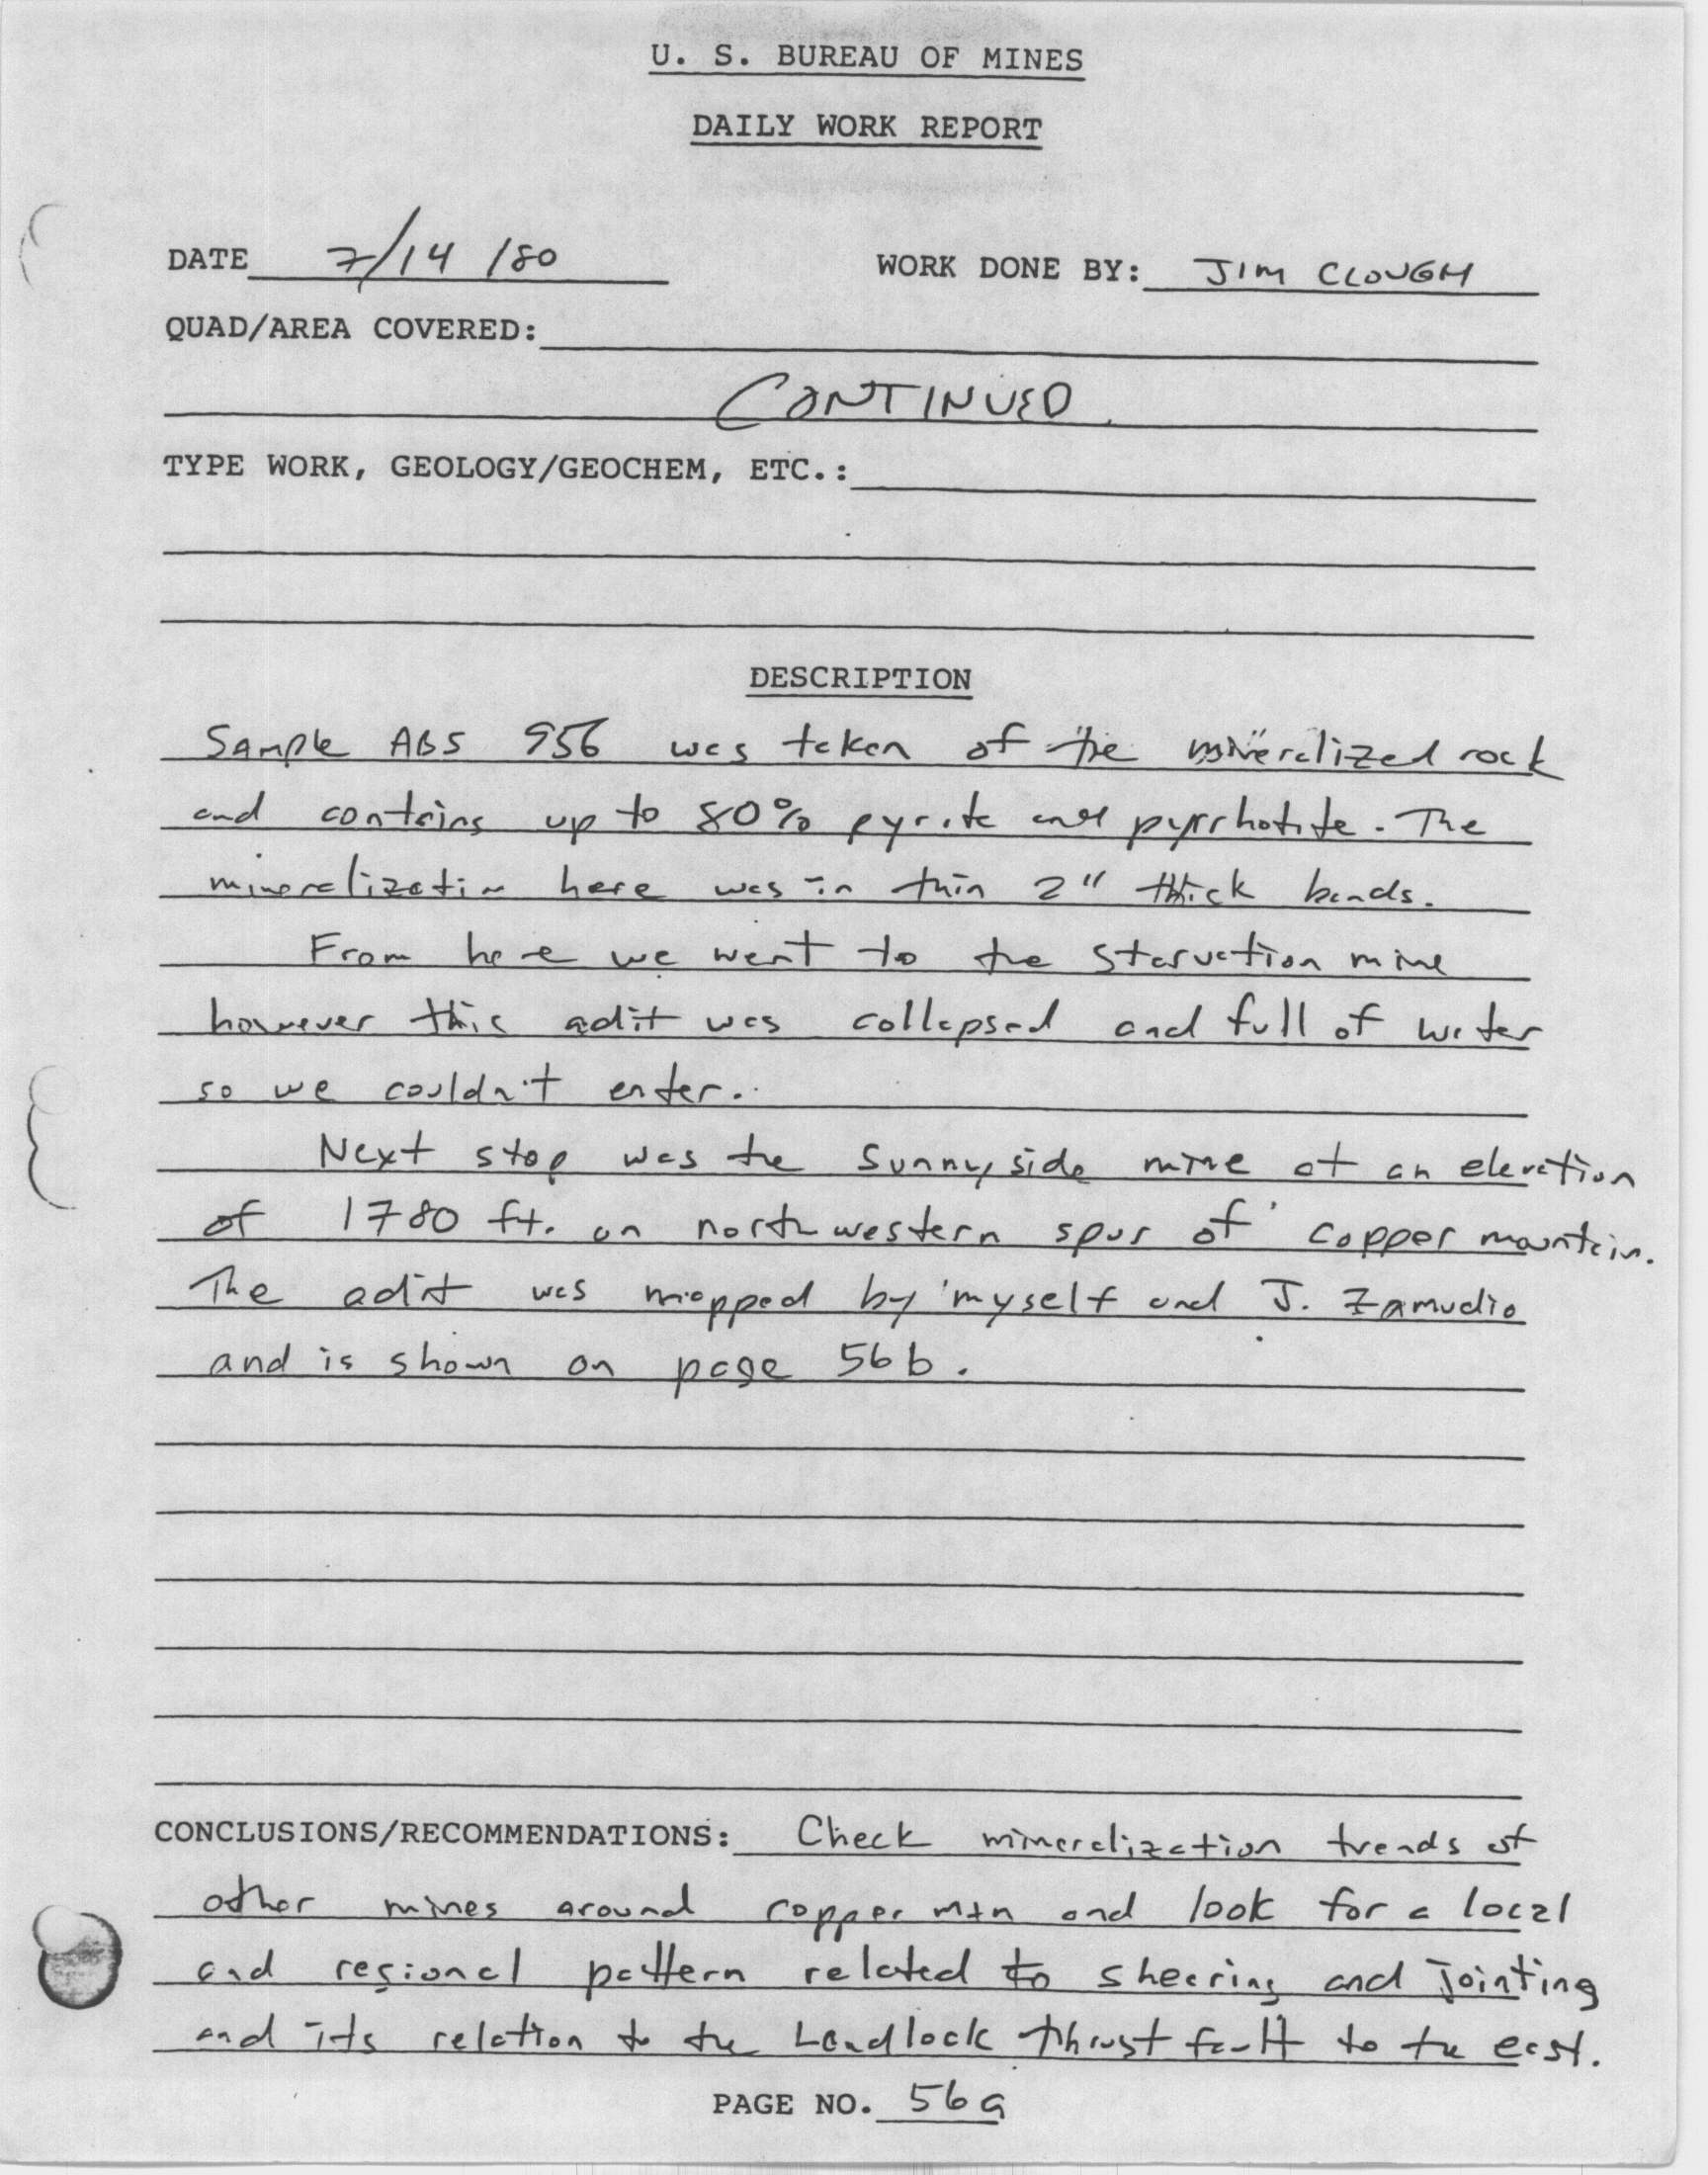 U. S. BUREAU OF MINES
DAILY WORK REPORT
DATE 7/14/80 WORK DONE BY: JIM CLOUGH
QUAD/AREA COVERED:
CONTINUED
TYPE WORK, GEOLOGY/GEOCHEM, ETC.:
DESCRIPTION
Sample ABS 956 was taken of the mineralized rock
and contains up to 80% pyrite and pyrrhotite. The
mineralization here was in thin 2" thick bands.
From here we went to the Starvation mine
however this adit was collapsed and full of water
so we couldn't enter.
Next stop was the Sunnyside mine at an elevation
of 1780 ft. on northwestern spur of copper mountain.
The adit was mapped by myself and J. Zamudio
and is shown on page 56b.
CONCLUSIONS/RECOMMENDATIONS: Check mineralization trends at
other mines around copper mtn and look for a local
and regional pattern related to shearing and jointing
and its relation to the Landlock thrust fault to the east.
PAGE NO. 56a